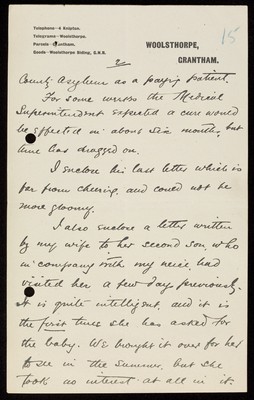 Telephone—4 Knipton.
Telegrams—Woolsthorpe.
Parcels—Grantham.
Goods—Woolsthorpe Siding, G.N.R.
WOOLSTHORPE,
GRANTHAM.
15
2
County Asylum as a paying patient.
For some weeks the Medical
Superintendent expected a cure would
be effected in about six months, but
time has dragged on.
I enclose his last letter which is
far from cheering, and could not be
more gloomy.
I also enclose a letter written
by my wife to her second son, who
in company with my neice had
visited her a few days previously.
It is quite intelligent, and it is
the first time she has asked for
the baby. We brought it over for her
to see in the summer, but she
took no interest at all in it.